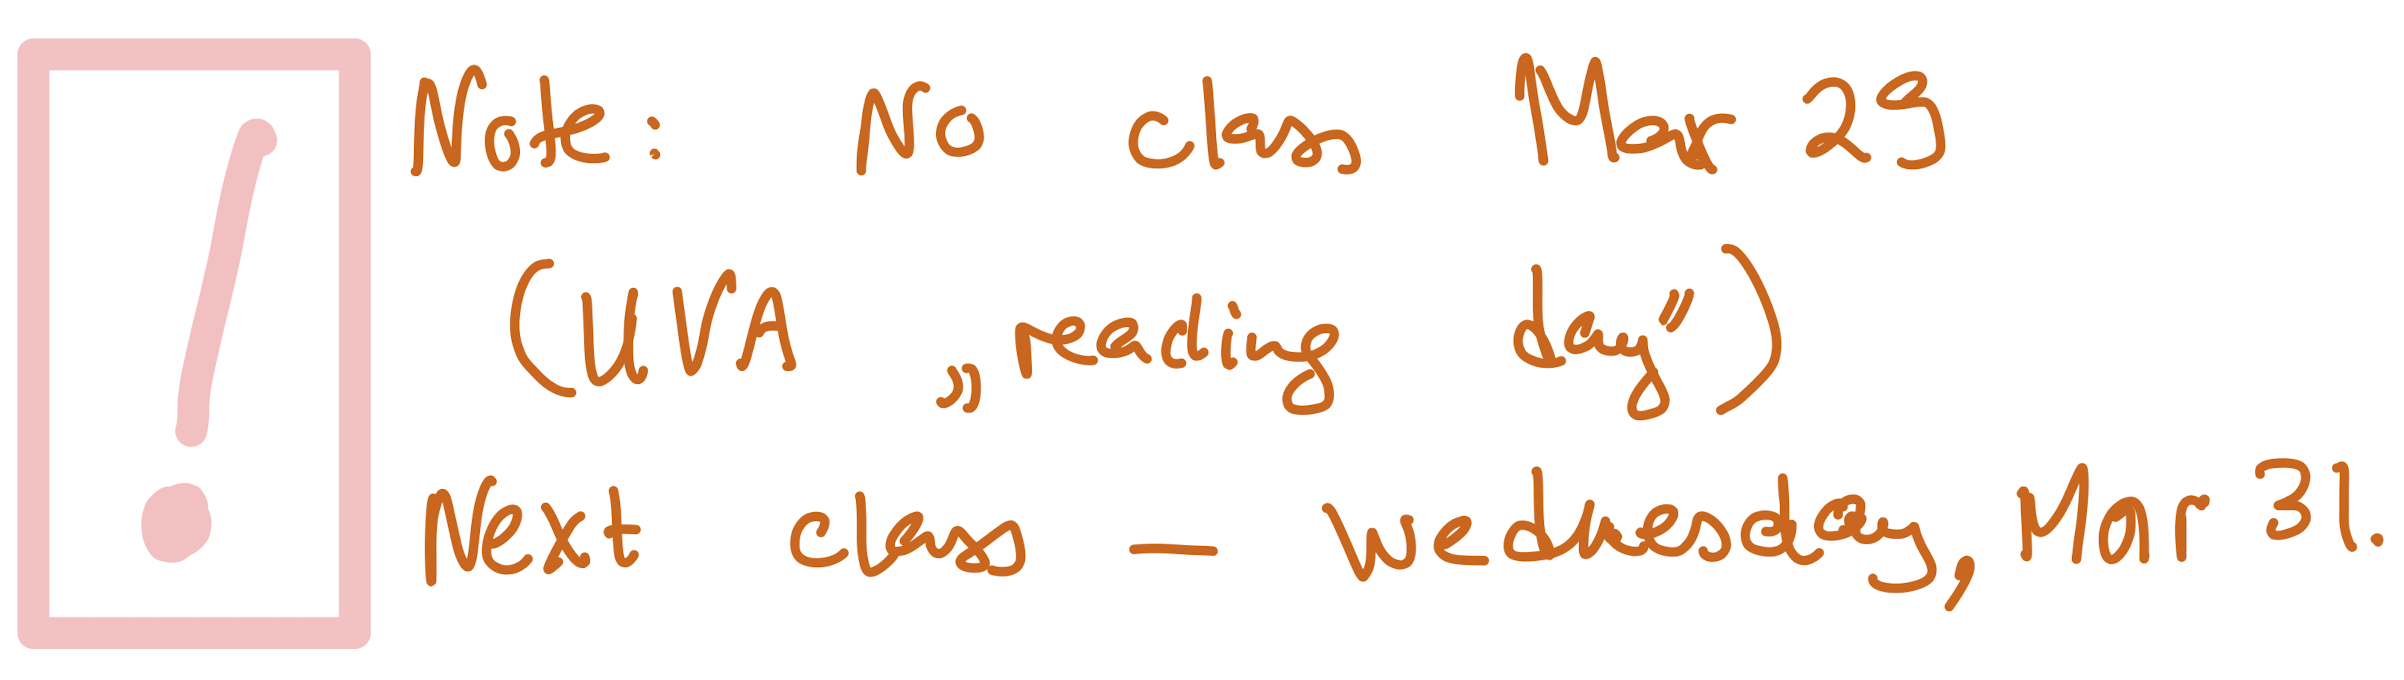 Note: No class Mar 29
(UVA „reading day")
Next class — Wednesday, Mar 31.